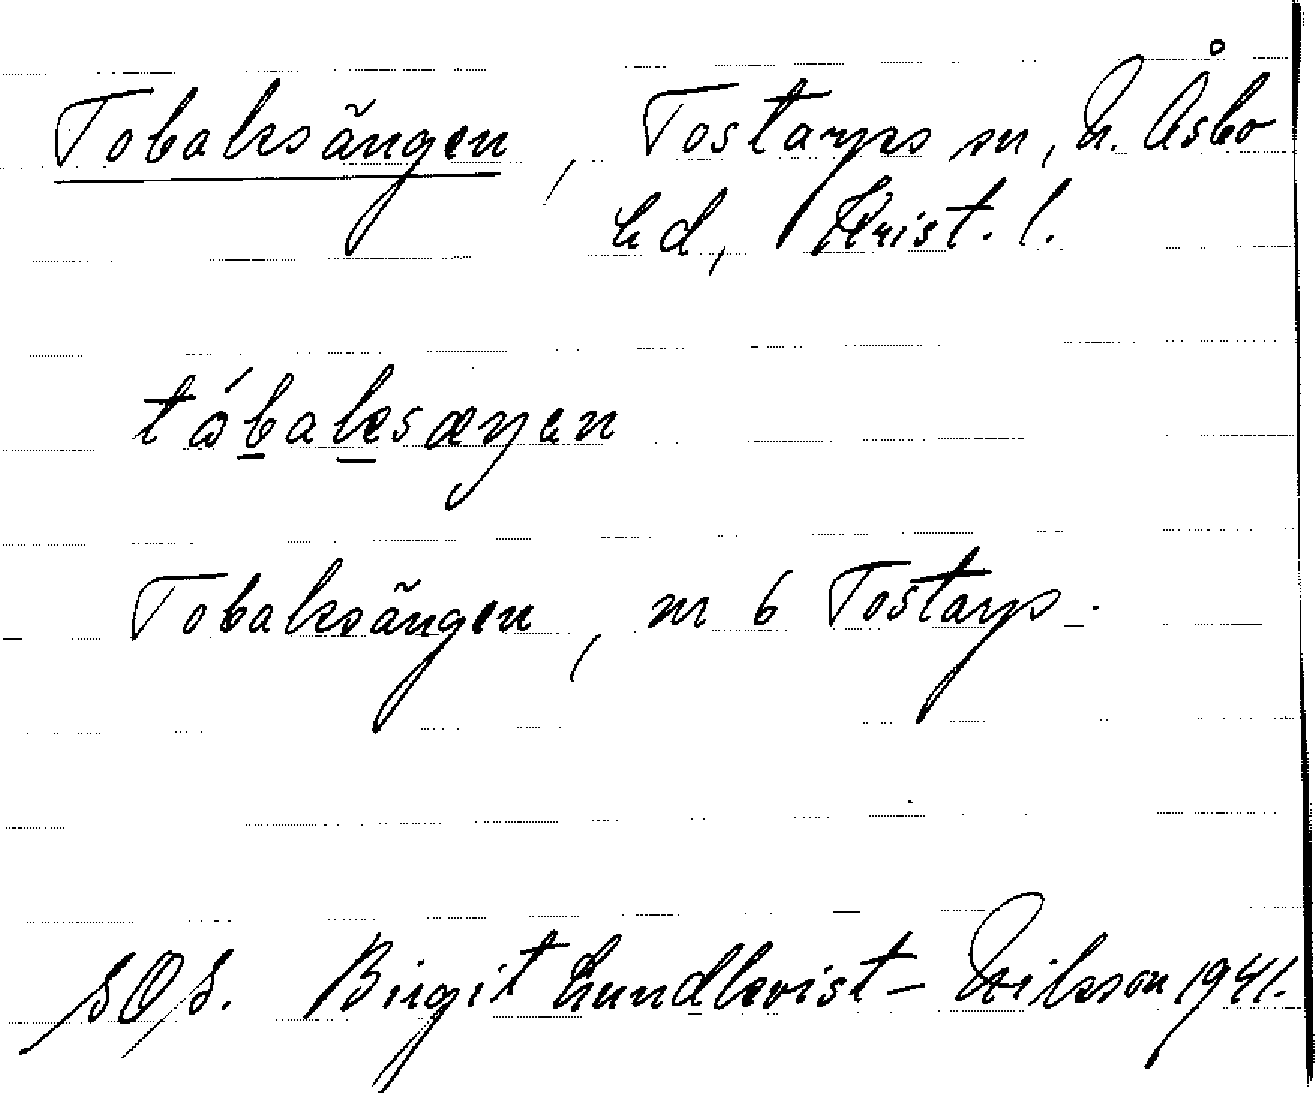 Tobaksängen, Tostarps sn, N. Åsbo
hd, Krist. l.
tǻbaksæŋen
Tobaksängen, nr 6 Tostarp.
SOS. Birgit Lundkvist-Nilsson 1941.